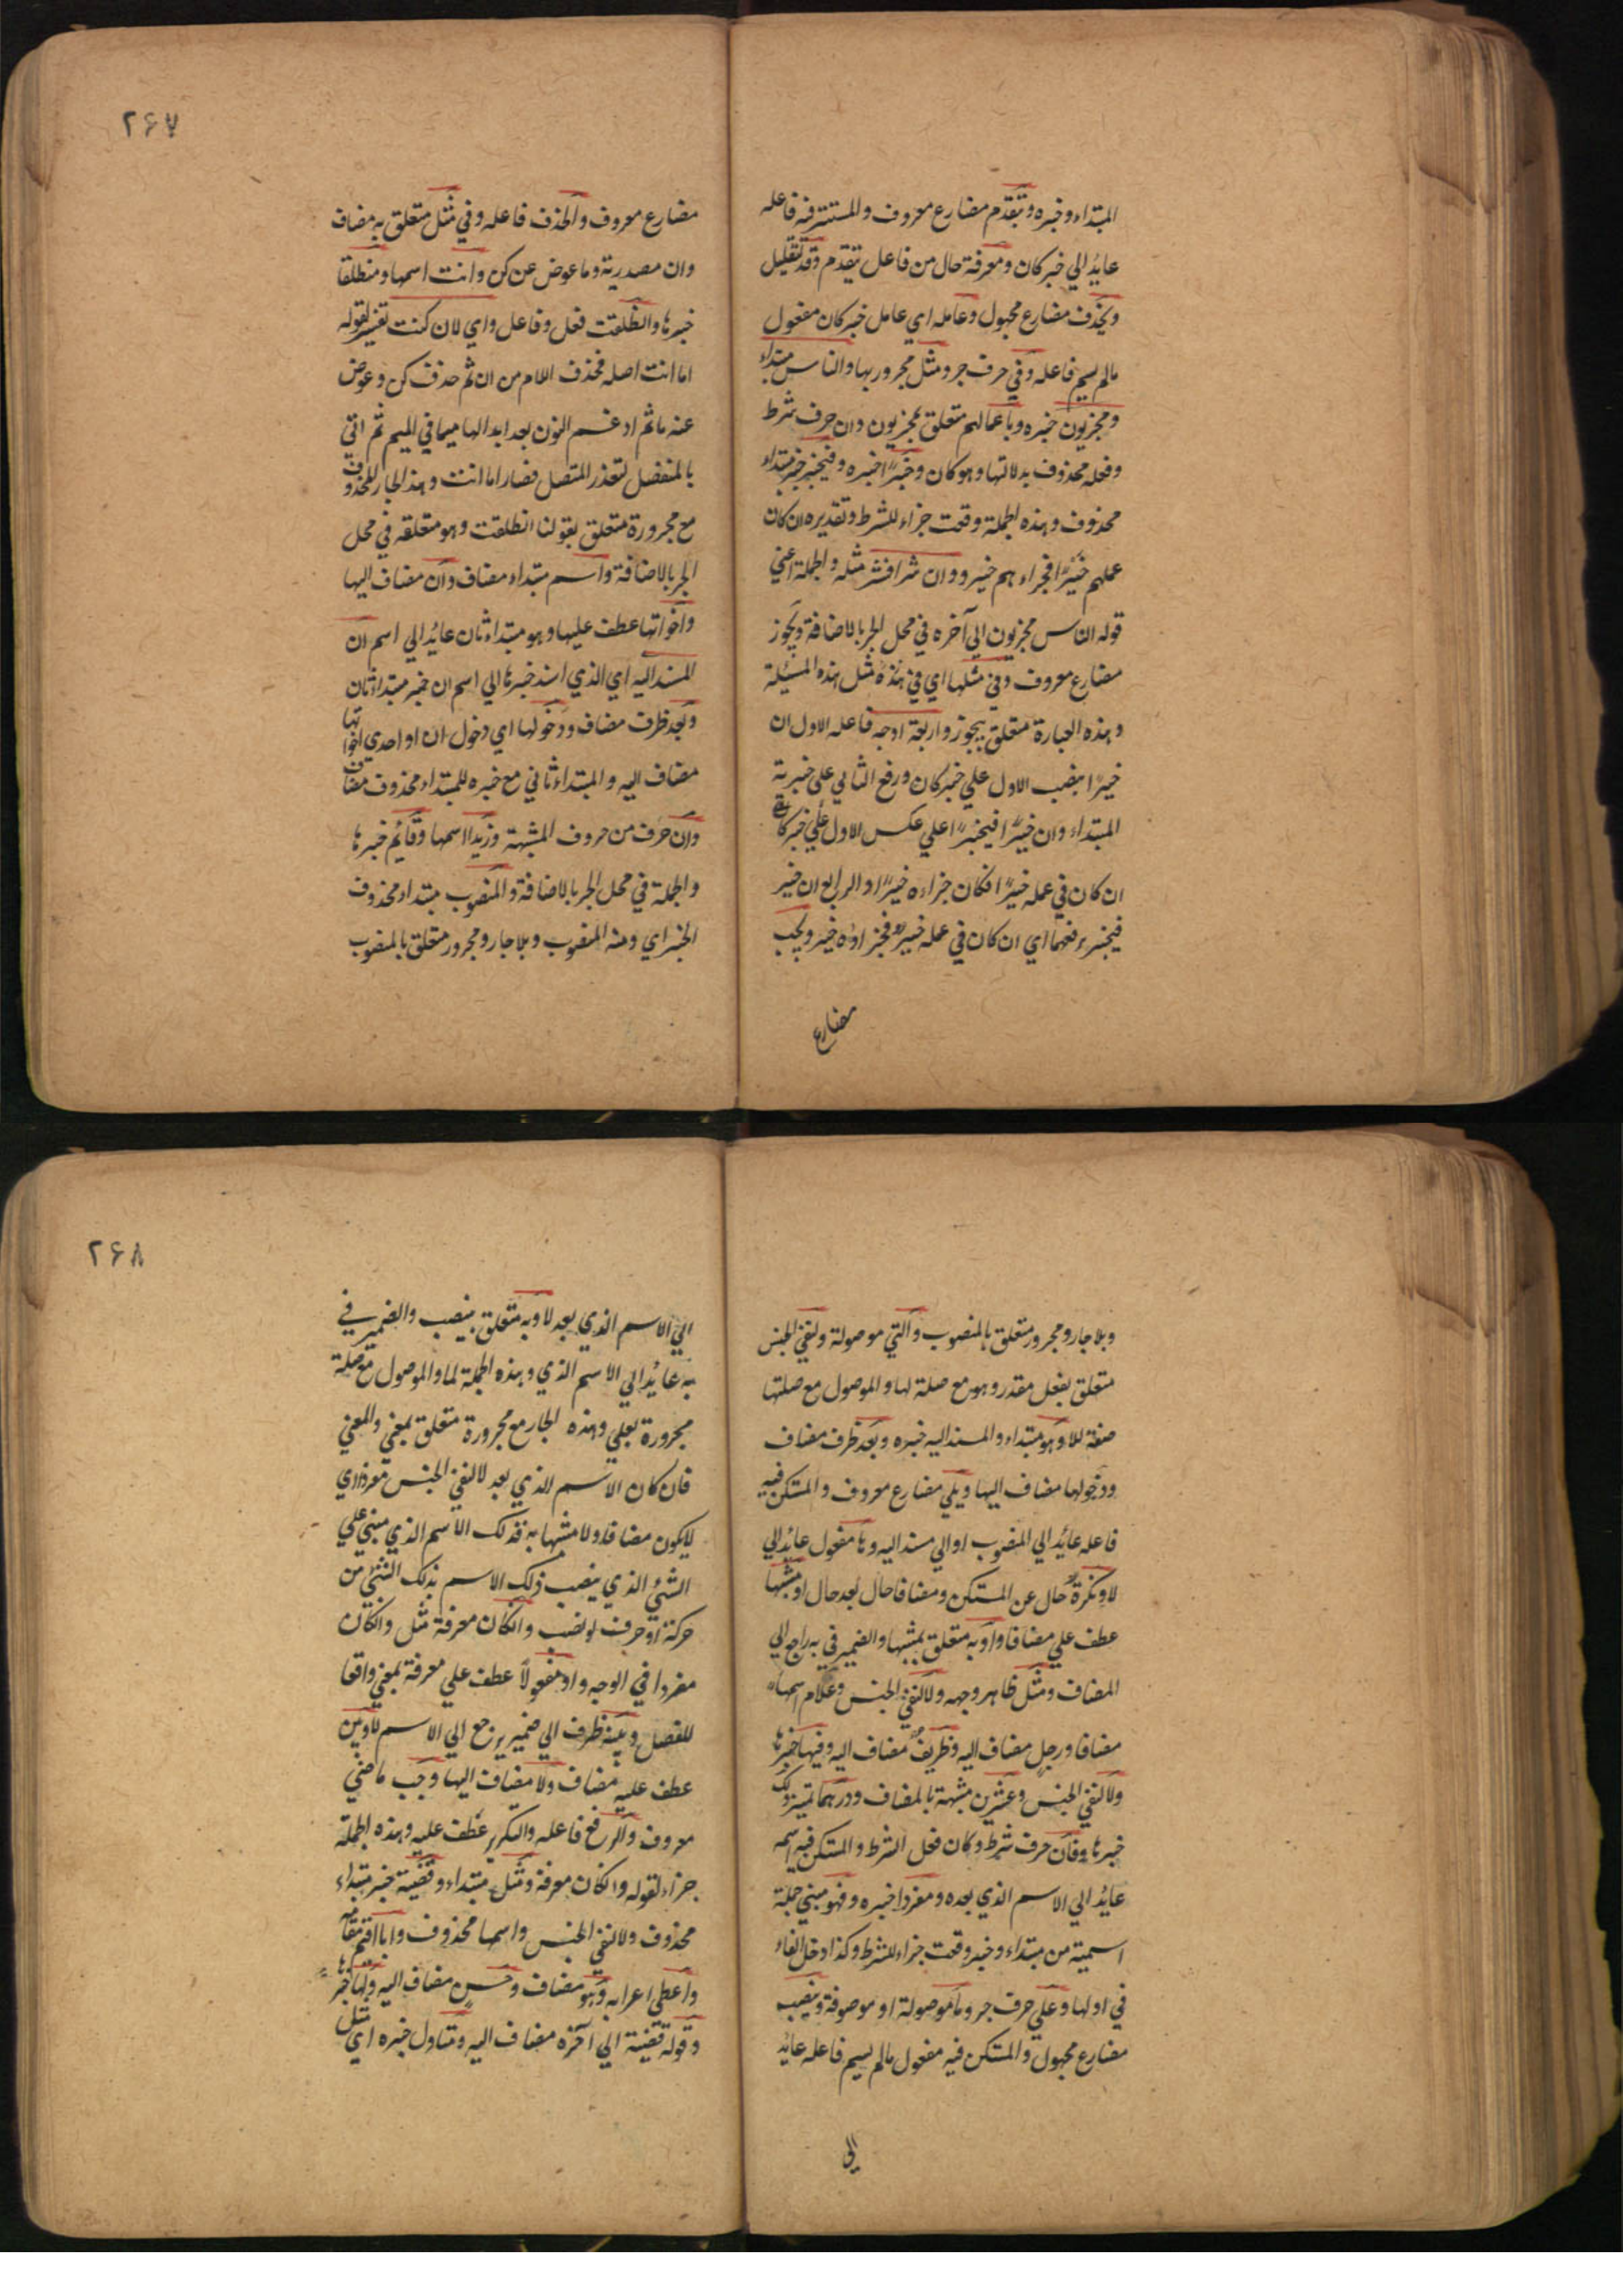 المبتداء وخبره ويتقدم مضارع معروف والمستتر فيه فاعله
عايد الي خبر كان ومعرفة حال من فاعل يتقدم وقد لتقليل
ويحذف مضارع مجهول وعامله اي عامل خبر كان مفعول
مالم يسم فاعله وفي حرف جر ومثل مجرور بها والناس مبتداء
ومجزيون خبره وباعمالهم متعلق بمجزيون وان حرف شرط
وفعله محذوف بدلالتها وهو كان وخيرًا خبره وفيخير خبر مبتداء
محذوف وهذه الجملة وقعت جزاء للشرط وتقديره ان كان
عملهم خيرًا فجزاءهم خير ووان شرا فشر مثله والجملة اعني
قوله الناس مجزيون الي آخره في محل الجر بالاضافة ويجوز
مضارع معروف وفي مثلها اي في هذه مثل هذه المسئلة
وهذه العبارة متعلق بيجوز واربعة اوجه فاعله الاول ان
خيرًا بنصب الاول علي خبر كان ورفع الثاني علي خبرية
المبتداء وان خيرًا فيخيرًا علي عكس الاول علي خبر كان
ان كان في عمله خيرًا فكان جزاءه خيرًا والرابع ان خير
فيخير برفعهما اي ان كان في عمله خير فجزاؤه خير ويجب
مضارع
۲۶۷
مضارع معروف والحذف فاعله وفي مثل متعلق به مضاف
وان مصدرية وما عوض عن كن وانت اسمها ومنطلقا
خبرها وانطلقت فعل وفاعل واي لان كنت تفسير لقوله
اما انت اصله فحذف اللام من ان ثم حذف كن وعوض
عنه ما ثم ادغم النون بعد ابدالها ميما في الميم ثم اتي
بالمنفصل لتعذر المتصل فصار اما انت وهذا الجار للمحذوف
مع مجرورة متعلق بقولنا انطلقت وهو متعلقه في محل
الجر بالاضافة واسم مبتداء مضاف وان مضاف اليها
واخواتها عطف عليها وهو مبتداء ثان عايد الي اسم ان
المسند اليه اي الذي اسند خبرها الي اسم ان خبر مبتداء ثان
وبعد ظرف مضاف ودخولها اي دخول ان او احدي اخواتها
مضاف اليه والمبتداء ثاني مع خبره للمبتداء محذوف مضاف
وان حرف من حروف المشبهة وزيدا اسمها وقائم خبرها
والجملة في محل الجر بالاضافة والمنصوب مبتداء محذوف
الخبر اي ومنه المنصوب وبلا جار ومجرور متعلق بالمنصوب
وبلا جار ومجرور متعلق بالمنصوب والتي موصولة ولنفي الجنس
متعلق بفعل مقدر وهو مع صلة لها والموصول مع صلتها
صفة للا وهو مبتداء والمسند اليه خبره وبعد ظرف مضاف
ودخولها مضاف اليها ويلي مضارع معروف والمستكن فيه
فاعله عائد الي المنصوب او الي مسند اليه وها مفعول عائد الي
لا ونكرة حال عن المستكن ومضافا حال بعد حال او مشبها
عطف علي مضافا واو به متعلق بمشبها والضمير في به راجع الي
المضاف ومثل ظاهر وجهه ولا لنفي الجنس وغلام اسمها
مضافا ورجل مضاف اليه وظريف مضاف اليه وفيها خبرها
ولا لنفي الجنس وعشرين مشبهة بالمضاف ودرهما تميز ولك
خبرها وفان حرف شرط وكان فعل الشرط والمستكن فيه اسمه
عايد الي الاسم الذي بعده ومفردا خبره وفهو مبني جملة
اسمية من مبتداء وخبر وقعت جزاء للشرط وكذا دخل الفاء
في اولها وعلي حرف جر وما موصولة او موصوفة وينصب
مضارع مجهول والمستكن فيه مفعول مالم يسم فاعله عائد
الي
۲۶۸
الي الاسم الذي بعد لا وبه متعلق بينصب والضمير في
به عائد الي الاسم الذي وهذه الجملة لما والموصول مع صلة
مجرورة بعلي وهذه الجار مع مجرورة متعلق بمبني والمعني
فان كان الاسم الذي بعد لا لنفي الجنس مفردا اي
لا يكون مضافا ولا مشبها به فذلك الاسم الذي مبني علي
الشئ الذي ينصب ذلك الاسم بذلك الشئ من
حركة او حرف لو نصب وان كان معرفة مثل وان كان
مفردا في الوجه واو مفعولاً عطف علي معرفة بمعني واقعا
للفصل وبينه ظرف الي ضمير يرجع الي الاسم لا وبين
عطف عليه مضاف ولا مضاف اليها وجب ماضي
معروف والرفع فاعله والتكرير عطف عليه وهذه الجملة
جزاء لقوله وان كان معرفة ومثل مبتداء وقضية خبر مبتداء
محذوف ولا لنفي الجنس واسمها محذوف وابا اقيم مقامه
واعطي اعرابه وهو مضاف وحسن مضاف اليه ولها خبرها
وقوله قضية الي آخره مضاف اليه ومتاول خبره اي مثل